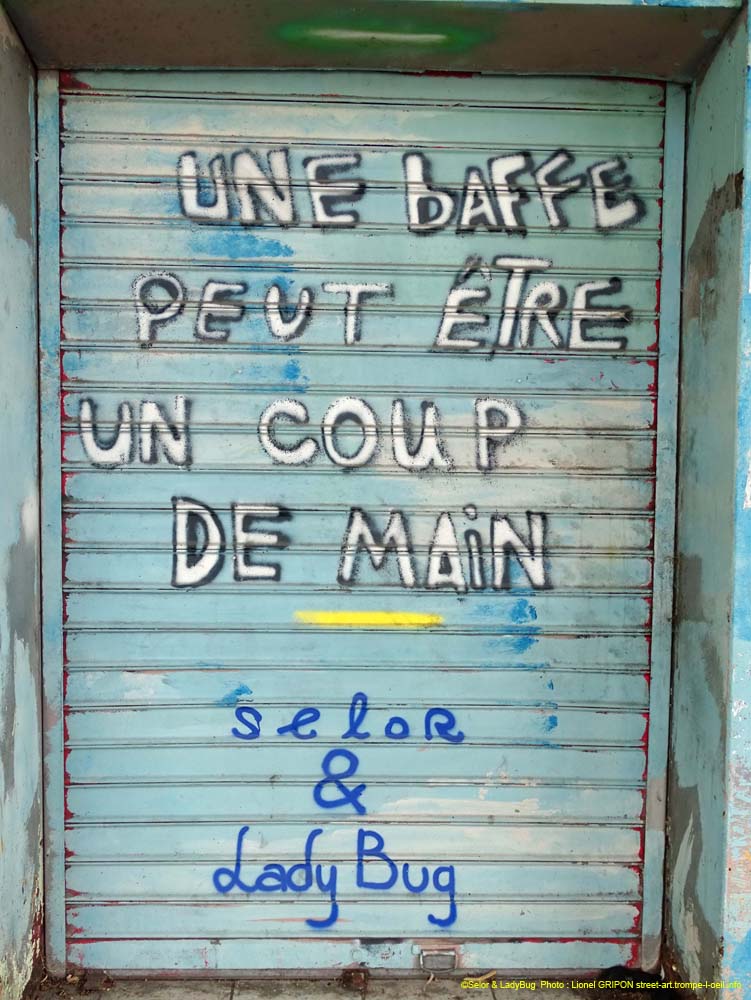 UNE bAFFE
PEUT ÊTRE
UN COUP
DE MAiN
seloR
&
Lady Bug
©Selor & LadyBug Photo : Lionel GRIPON street-art.trompe-l-oeil.info